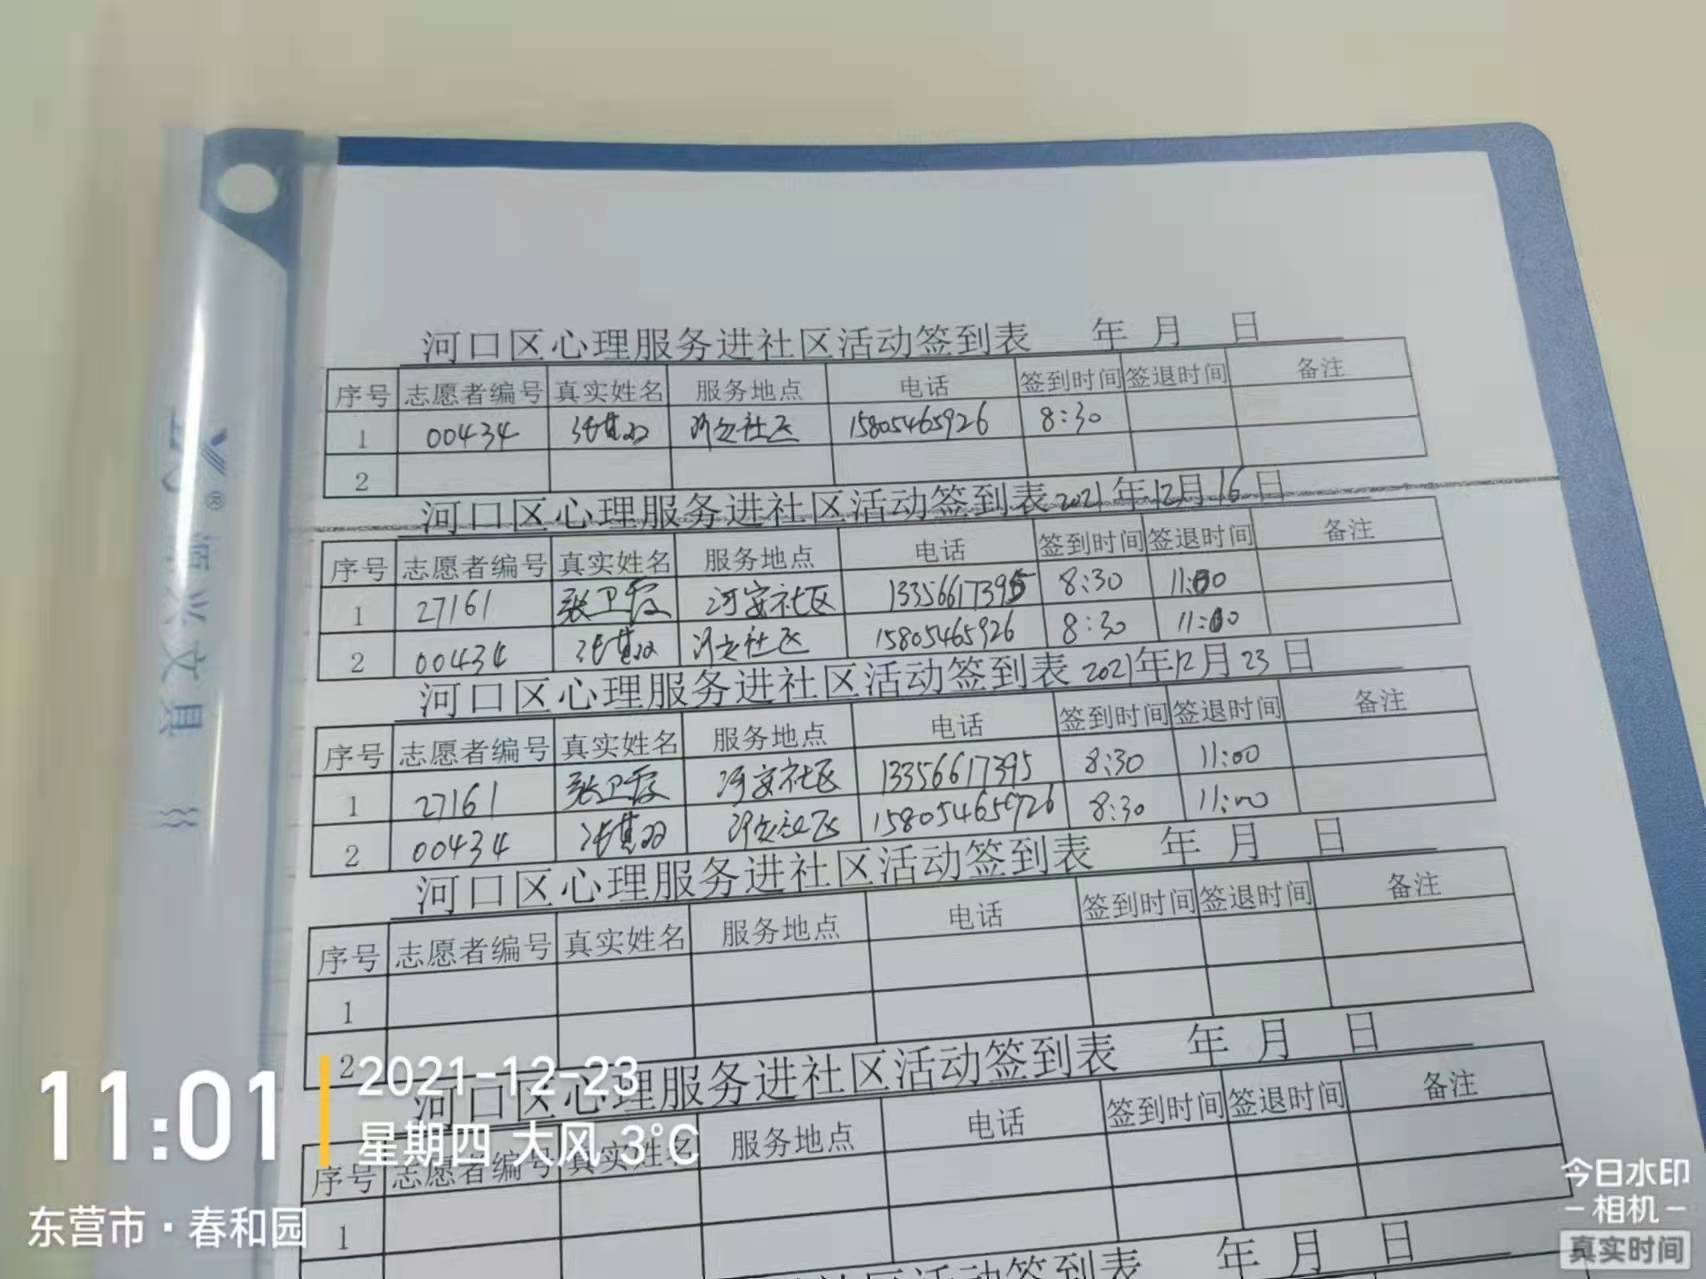 河口区心理服务进社区活动签到表 年 月 日
序号 志愿者编号 真实姓名 服务地点 电话 签到时间 签退时间 备注
1 00434 河安社区 15805465926 8:30
2
河口区心理服务进社区活动签到表 2021年12月16日
序号 志愿者编号 真实姓名 服务地点 电话 签到时间 签退时间 备注
1 27161 张卫霞 河安社区 13356617395 8:30 11:00
2 00434 河安社区 15805465926 8:30 11:00
河口区心理服务进社区活动签到表 2021年12月23日
序号 志愿者编号 真实姓名 服务地点 电话 签到时间 签退时间 备注
1 27161 张卫霞 河安社区 13356617395 8:30 11:00
2 00434 河安社区 15805465926 8:30 11:00
河口区心理服务进社区活动签到表 年 月 日
序号 志愿者编号 真实姓名 服务地点 电话 签到时间 签退时间 备注
1
2
河口区心理服务进社区活动签到表 年 月 日
序号 志愿者编号 真实姓名 服务地点 电话 签到时间 签退时间 备注
1
社区活动签到表 年 月 日
兴文具
®
11:01
2021-12-23
星期四 大风 3℃
东营市·春和园
今日水印
-相机-
真实时间